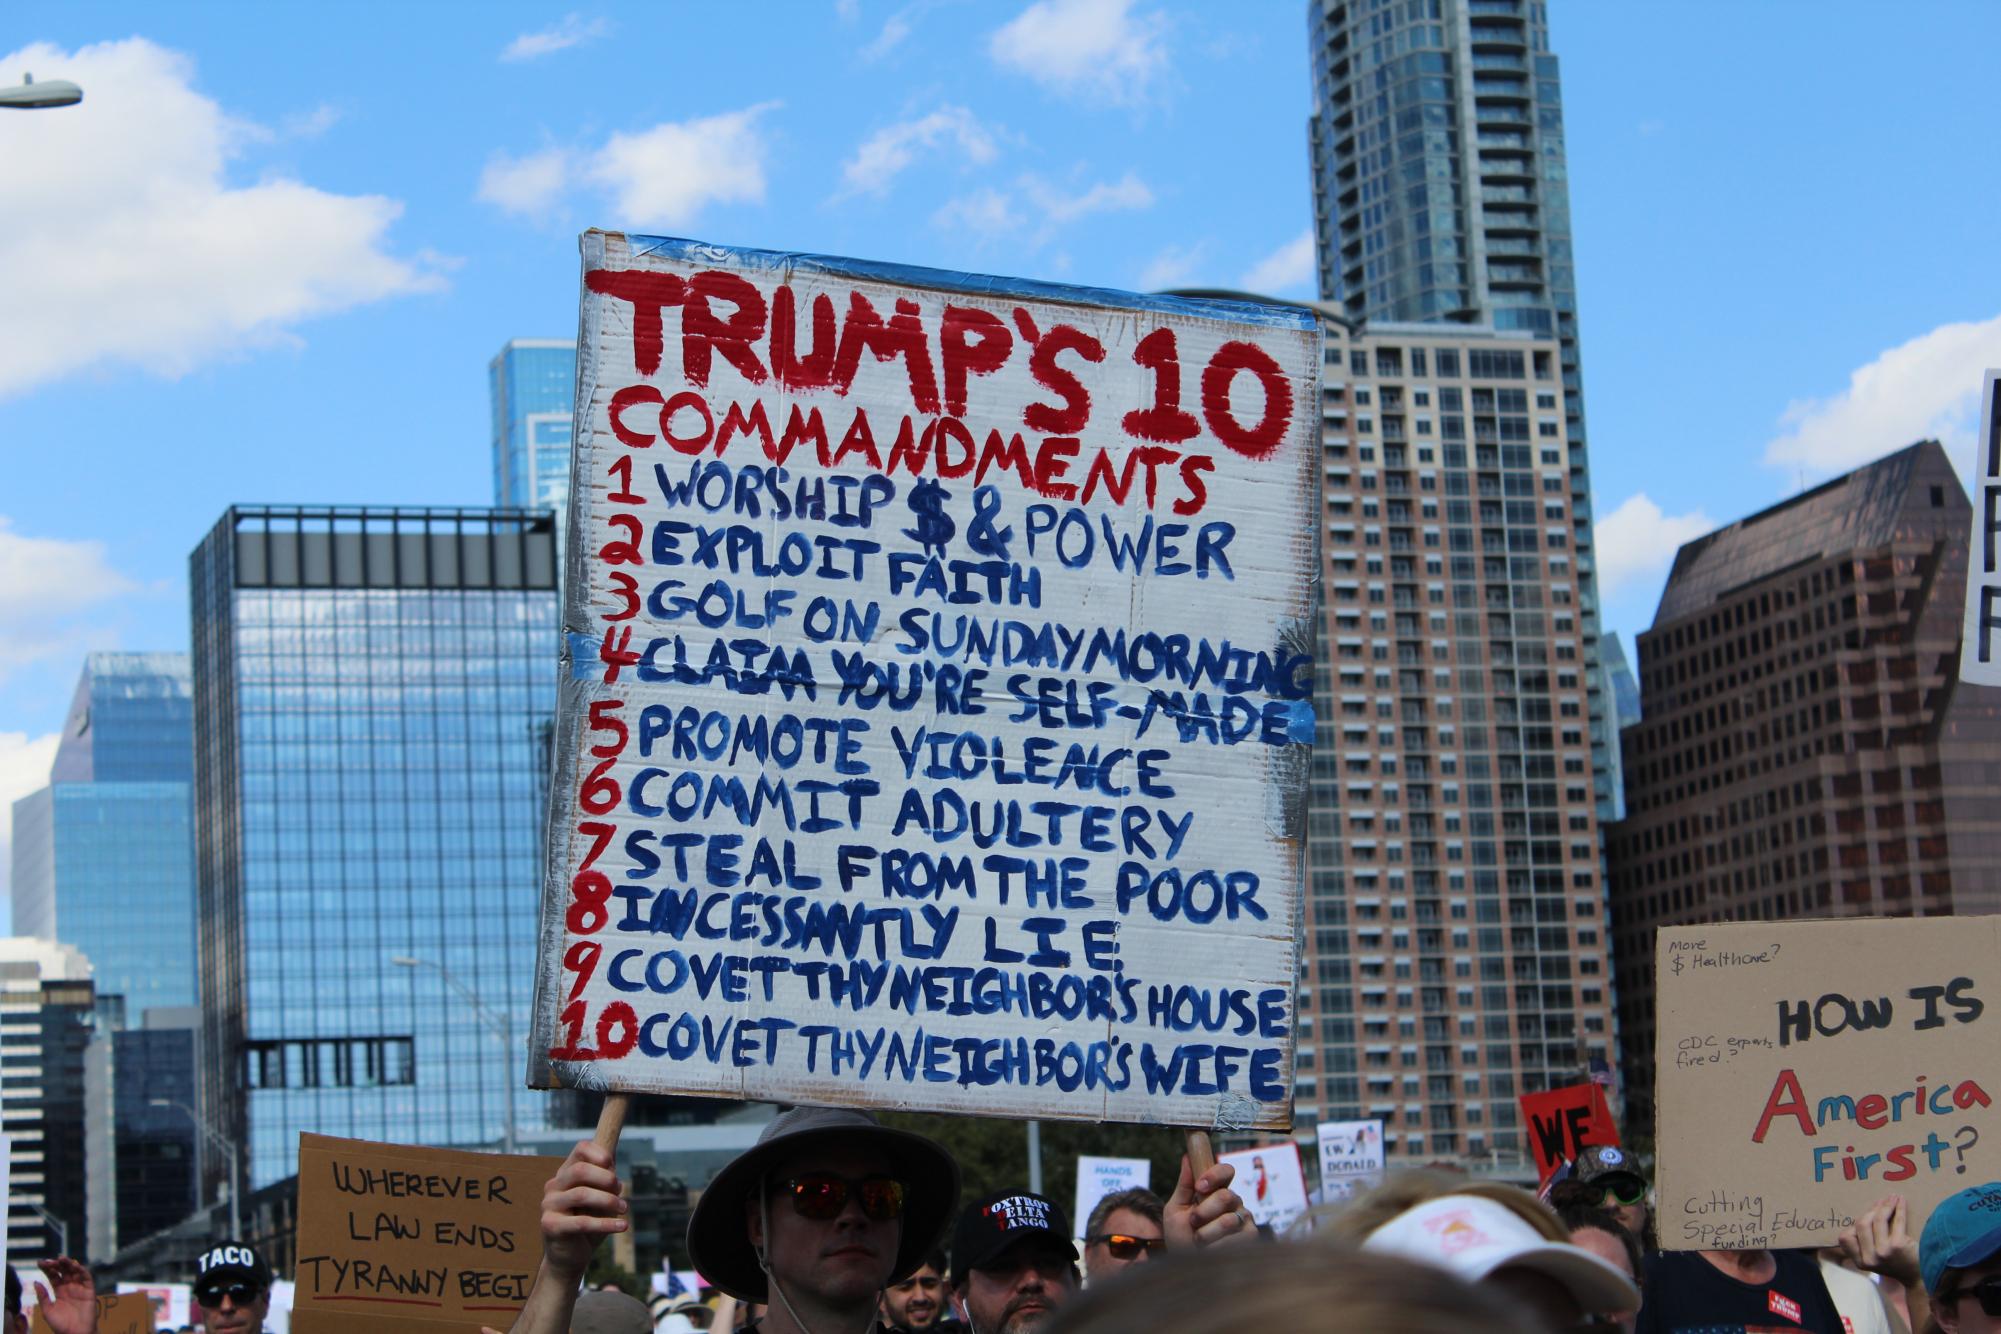 TRUMP'S 10
COMMANDMENTS
1 WORSHIP $ & POWER
2 EXPLOIT FAITH
3 GOLF ON SUNDAY MORNING
4 CLAIM YOU'RE SELF-MADE
5 PROMOTE VIOLENCE
6 COMMIT ADULTERY
7 STEAL FROM THE POOR
8 INCESSANTLY LIE
9 COVET THY NEIGHBOR'S HOUSE
10 COVET THY NEIGHBOR'S WIFE
WHEREVER
LAW ENDS
TYRANNY BEGI
TACO
FOXTROT
DELTA
TANGO
HANDS
OFF
EW
DONALD
WE
More
$ Healthcare?
HOW IS
CDC experts
fired?
America
First?
Cutting
Special Education
funding?
FUCK
TRUMP